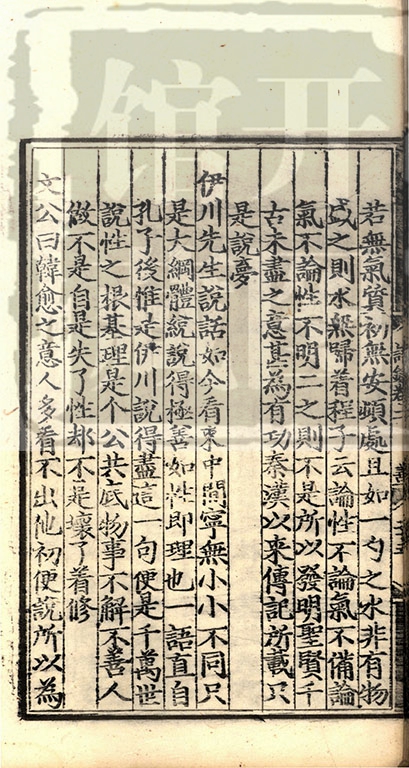 若無氣質初無安頓處且如一勺之水非有物
盛之則水無歸着程子云論性不論氣不備論
氣不論性不明二之則不是所以發明聖賢千
古未盡之意甚爲有功秦漢以來傳記所載只
是說夢
伊川先生說話如今看來中間寧無小小不同只
是大綱體統說得極善如性即理也一語直自
孔子後惟是伊川說得盡這一句便是千萬世
說性之根基理是个公共底物事不解不善人
做不是自是失了性却不是壞了着修
文公曰韓愈之意人多看不出他初便說所以爲
开
馆